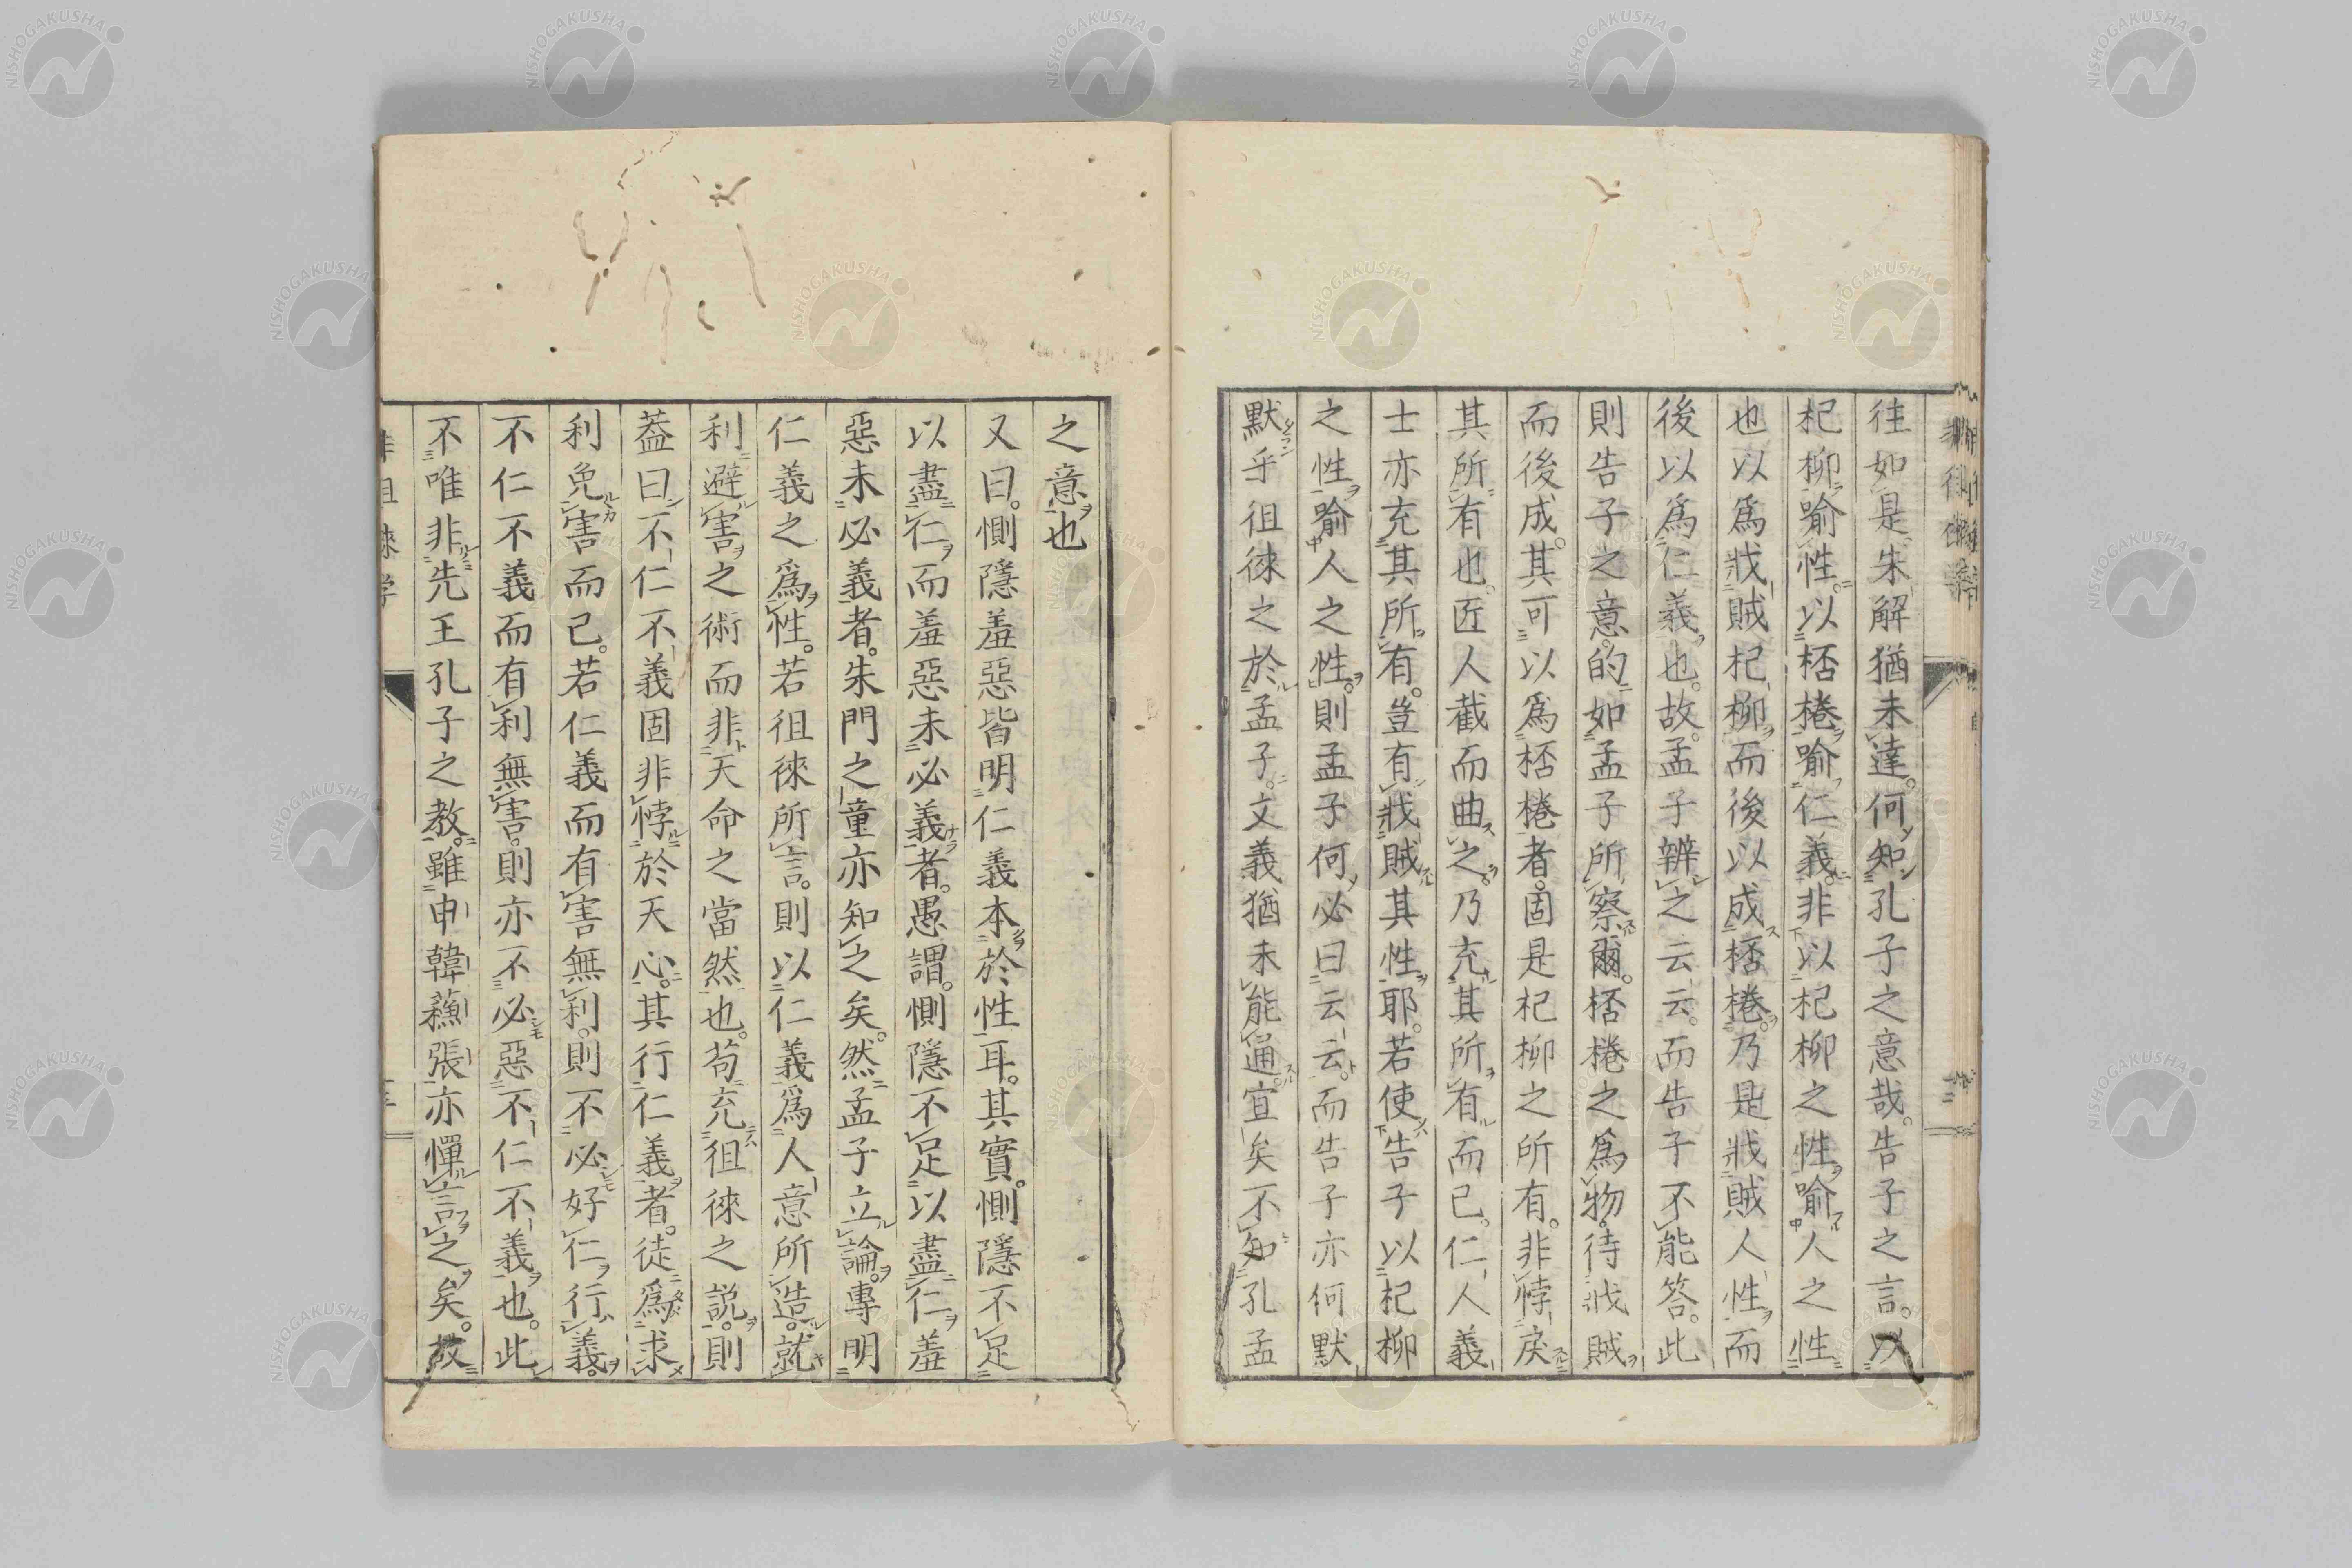 徃如是朱解猶未達。何知孔子之意哉。告子之言。以
杞柳喻性。以桮棬喻仁義。非以杞柳之性喻人之性
也以爲戕賊杞柳而後以成桮棬。乃是戕賊人性而
後以爲仁義也。故孟子辨之云云。而告子不能答。此
則告子之意。的如孟子所察爾。桮棬之爲物。待戕賊
而後成。其可以爲桮棬者。固是杞柳之所有。非悖戾
其所有也。匠人截而曲之。乃充其所有而已。仁人義
士亦充其所有。豈有戕賊其性耶。若使告子以杞柳
之性喻人之性。則孟子何必曰云云。而告子亦何默
默乎徂徠之於孟子。文義猶未能通。宜矣不知孔孟
之意也
又曰。惻隱羞惡皆明仁義本於性耳。其實。惻隱不足
以盡仁而羞惡未必義者。愚謂。惻隱不足以盡仁羞
惡未必義者。朱門之童亦知之矣。然孟子立論。專明
仁義之爲性。若徂徠所言。則以仁義爲人意所造。就
利避害之術而非天命之當然也。苟充徂徠之説。則
葢曰不仁不義固非悖於天心。其行仁義者。徒爲求
利免害而已。若仁義而有害無利。則不必好仁行義。
不仁不義而有利無害。則亦不必惡不仁不義也。此
不唯非先王孔子之教。雖申韓蘇張亦憚言之矣。故
非徂徠学
NISHOGAKUSHA